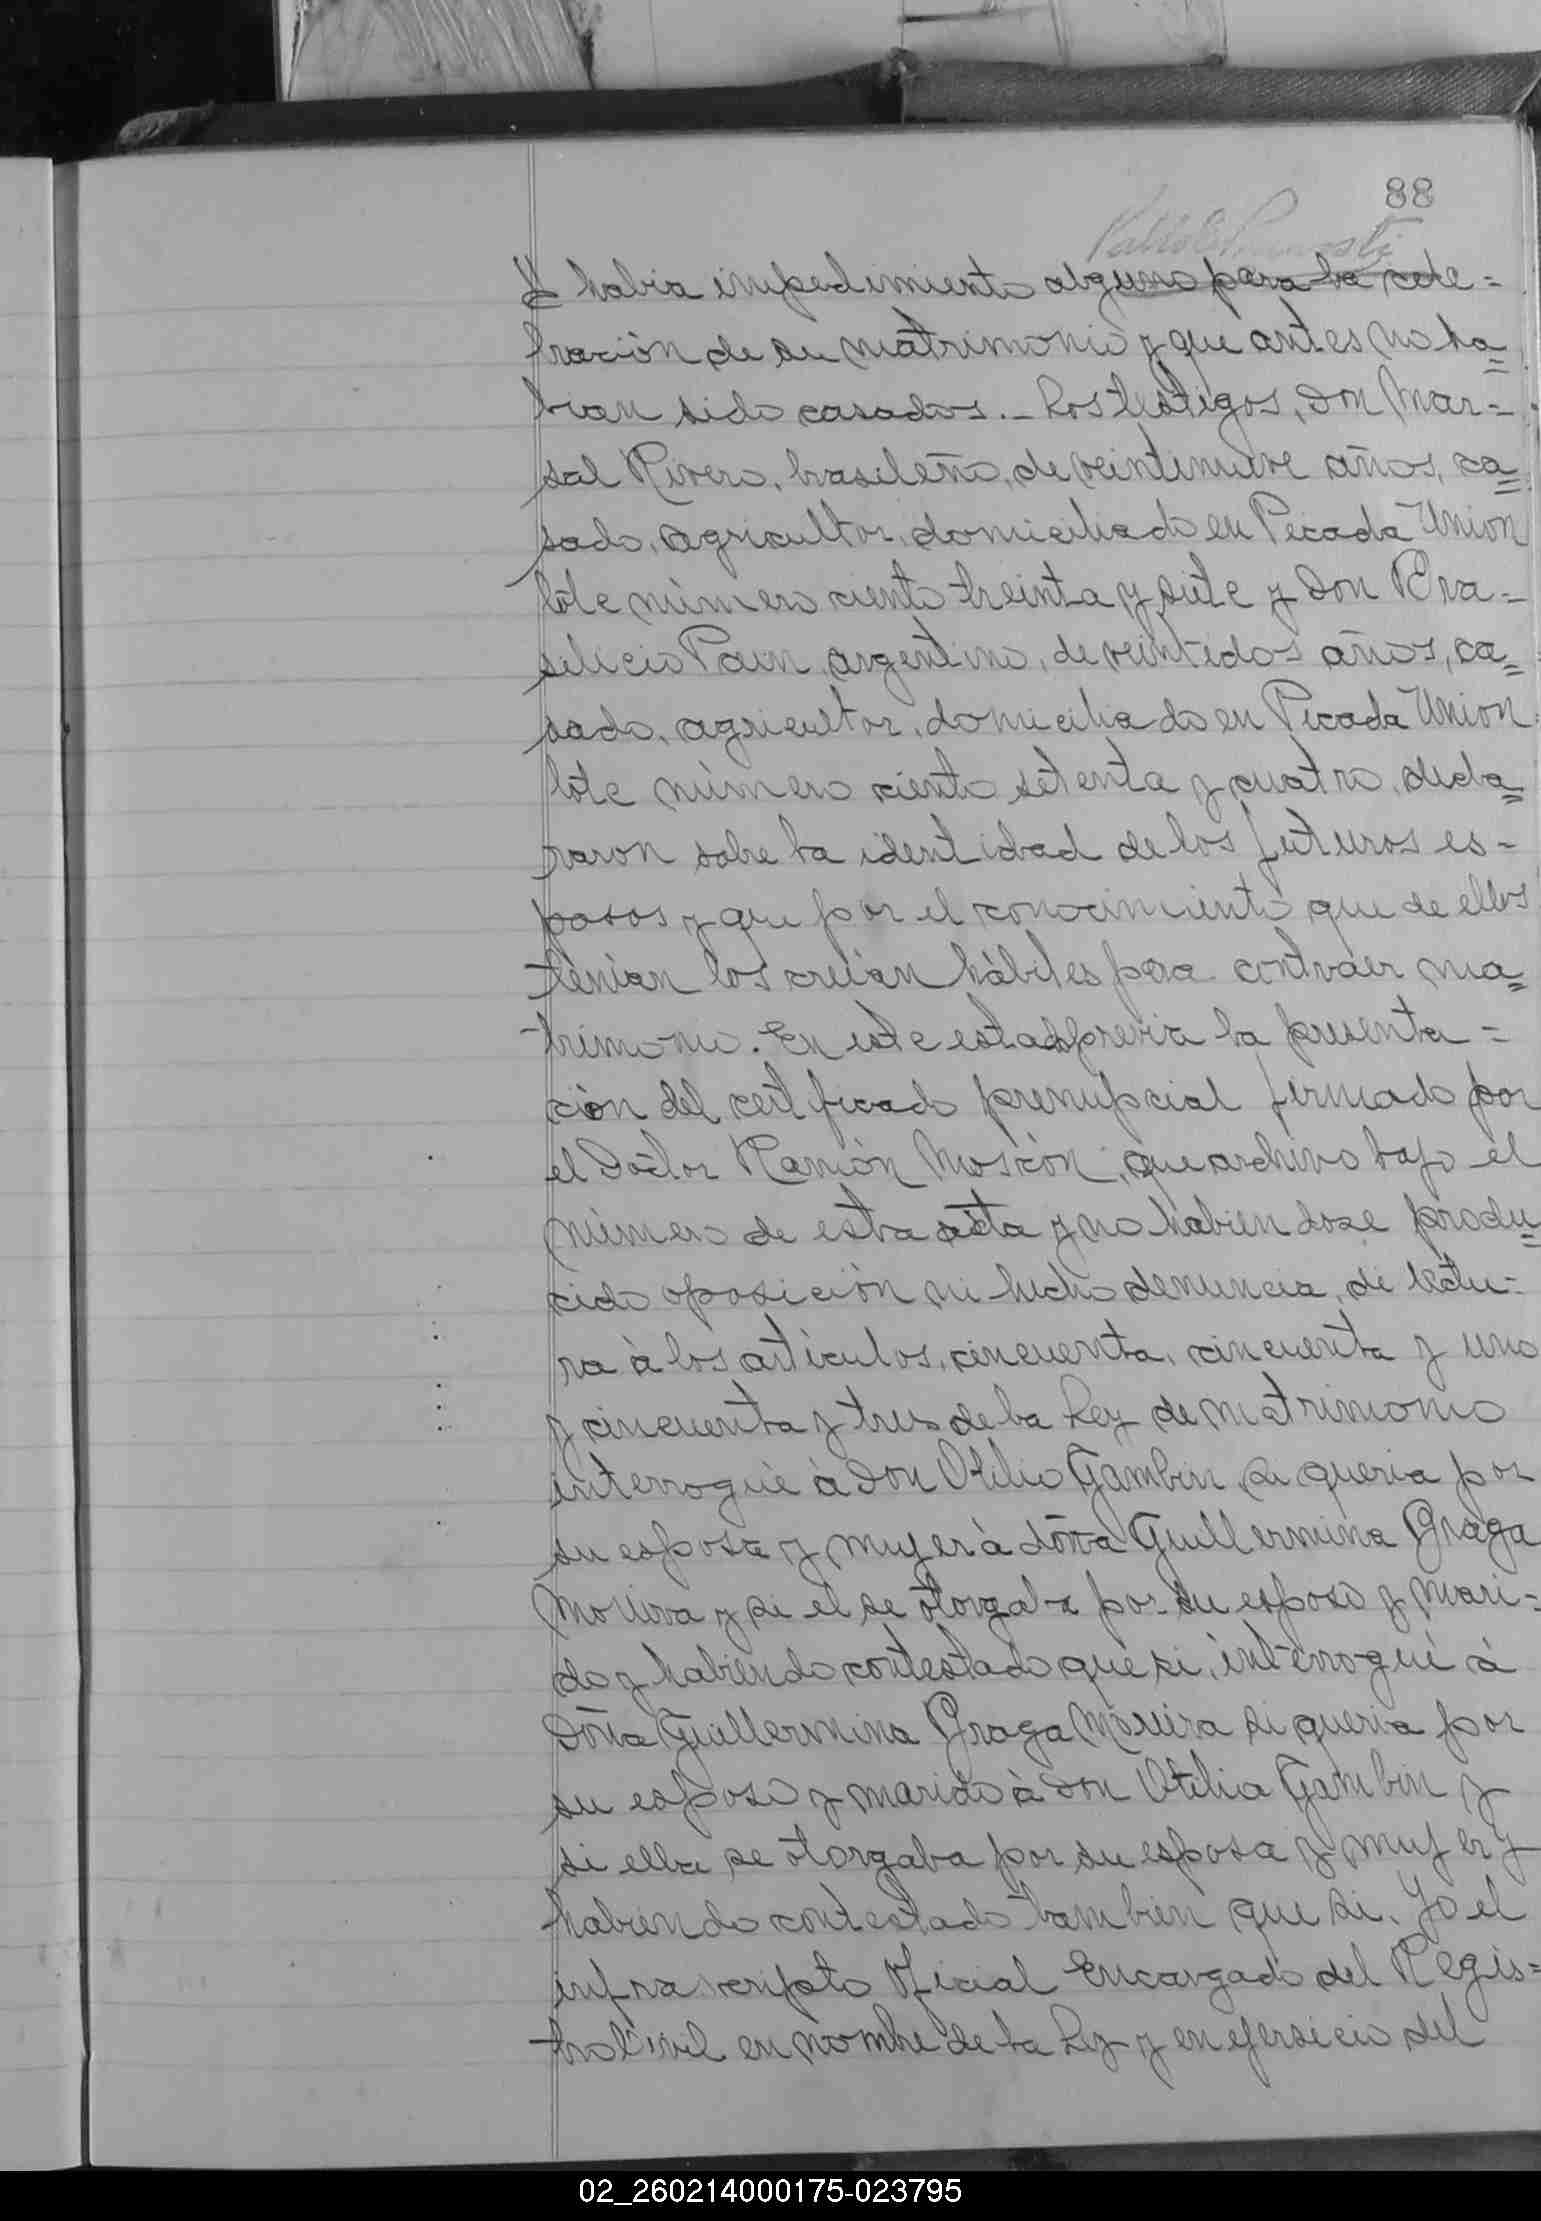 88
habia impedimiento alguno para la cele=
bración de su matrimonio y que antes no ha=
bian sido casados.- Los testigos, Don Mar-
sal Rivero, brasileño, de veintinueve años, ca=
sado, agricultor, domiciliado en Picada Union
lote número ciento treinta y siete y Don Bra-
silicio Pain, argentino, de veintidos años, ca=
sado, agricultor, domiciliado en Picada Union
lote número ciento setenta y cuatro, decla=
raron sobre la identidad de los futuros es-
posos y que por el conocimiento que de ellos
tenian los creian hábiles para contraer ma=
trimonio. En este estado previa la presenta=
ción del certificado prenupcial firmado por
el Doctor Ramón Moscón, que archivo bajo el
número de esta acta y no habiendose produ=
cido oposición ni hecho denuncia, di lectu-
ra à los articulos, cincuenta, cincuenta y uno
y cincuenta y tres de la Ley de matrimonio
interroguè à Don Otilio Gambin, si queria por
su esposa y mujer à doña Guillermina Graga
Moreira y si el se otorgaba por su esposo y mari=
do y habiendo contestado que si, interroguè à
Doña Guillermina Graga Moreira si queria por
su esposo y marido à Don Otilio Gambin y
si ella se otorgaba por su esposa y mujer y
habiendo contestado tambien que si. Yo el
infrascripto Oficial Encargado del Regis=
tro Civil en nombre de la Ley y en ejersicio del
02_260214000175-023795